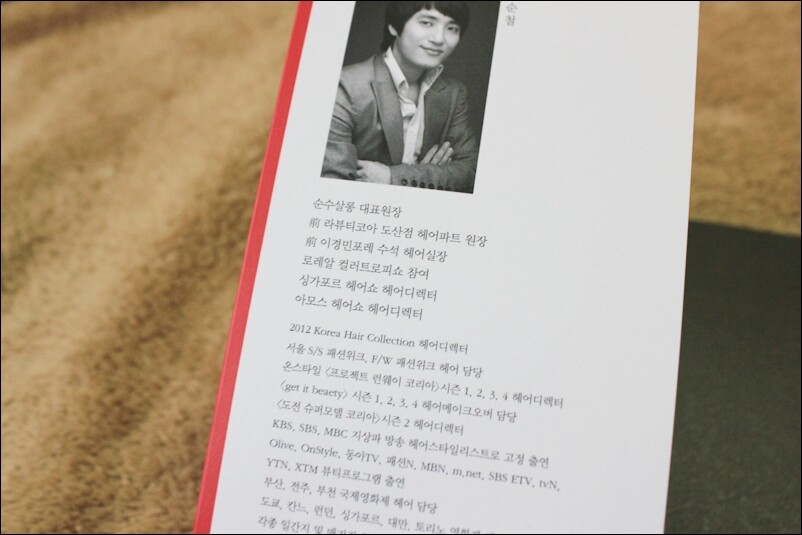 순철
순수살롱 대표원장
前 라뷰티코아 도산점 헤어파트 원장
前 이경민포레 수석 헤어실장
로레알 컬러트로피쇼 참여
싱가포르 헤어쇼 헤어디렉터
아모스 헤어쇼 헤어디렉터
2012 Korea Hair Collection 헤어디렉터
서울 S/S 패션위크, F/W 패션위크 헤어 담당
온스타일 〈프로젝트 런웨이 코리아〉시즌 1, 2, 3, 4 헤어디렉터
〈get it beaety〉 시즌 1, 2, 3, 4 헤어메이크오버 담당
〈도전 슈퍼모델 코리아〉시즌 2 헤어디렉터
KBS, SBS, MBC 지상파 방송 헤어스타일리스트로 고정 출연
Olive, OnStyle, 동아TV, 패션N, MBN, m.net, SBS ETV, tvN,
YTN, XTM 뷰티프로그램 출연
부산, 전주, 부천 국제영화제 헤어 담당
도쿄, 칸느, 런던, 싱가포르, 대만, 토리노
각종 일간지 및